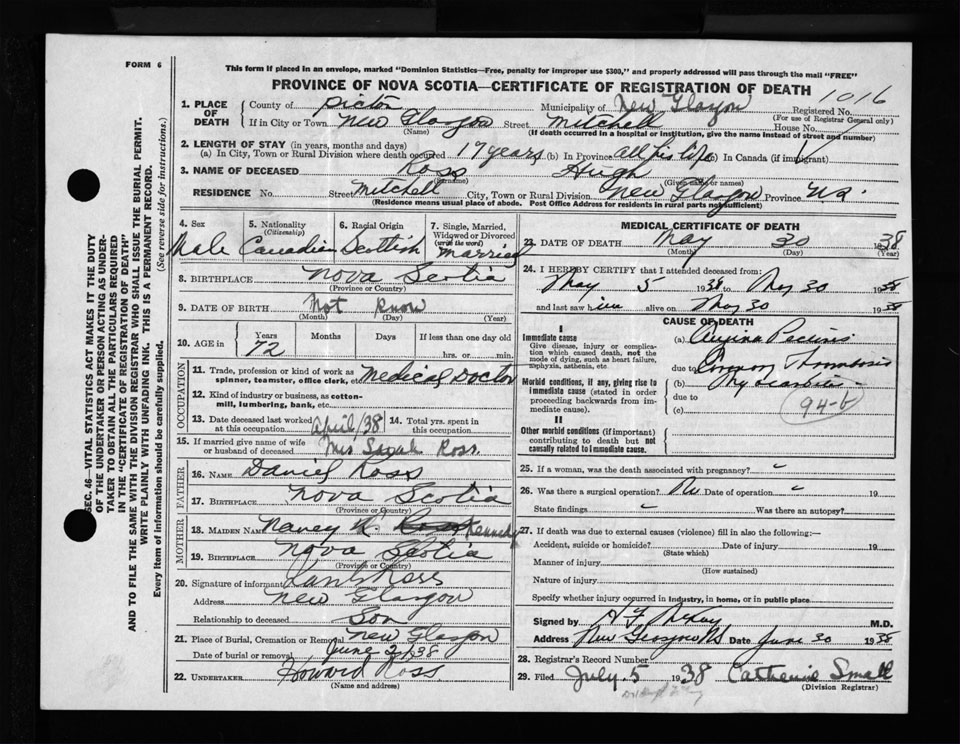 FORM 6
This form if placed in an envelope, marked "Dominion Statistics—Free, penalty for improper use $300," and properly addressed will pass through the mail "FREE"
PROVINCE OF NOVA SCOTIA—CERTIFICATE OF REGISTRATION OF DEATH
1016
1. PLACE OF DEATH
County of Pictou Municipality of New Glasgow Registered No.
(For use of Registrar General only)
If in City or Town New Glasgow Street Mitchell House No.
(Name) (If death occurred in a hospital or institution, give the name instead of street and number)
2. LENGTH OF STAY (in years, months and days)
(a) In City, Town or Rural Division where death occurred 17 years (b) In Province All his life (c) In Canada (if immigrant)
3. NAME OF DECEASED Ross Hugh
(Surname) (Given name or names)
RESIDENCE No. Street Mitchell City, Town or Rural Division New Glasgow Province N.S.
(Residence means usual place of abode. Post Office Address for residents in rural parts not sufficient)
4. Sex Male
5. Nationality (Citizenship) Canadian
6. Racial Origin Scottish
7. Single, Married, Widowed or Divorced (write the word) Married
8. BIRTHPLACE Nova Scotia
(Province or Country)
9. DATE OF BIRTH Not Know
(Month) (Day) (Year)
10. AGE in Years 72 Months Days If less than one day old
hrs. or min.
OCCUPATION
11. Trade, profession or kind of work as spinner, teamster, office clerk, etc. Medical Doctor
12. Kind of industry or business, as cotton-mill, lumbering, bank, etc.
13. Date deceased last worked at this occupation April/38
14. Total yrs. spent in this occupation
15. If married give name of wife or husband of deceased Mrs Sarah Ross.
FATHER
16. NAME Daniel Ross
17. BIRTHPLACE Nova Scotia
(Province or Country)
MOTHER
18. MAIDEN NAME Nancy Kennedy
19. BIRTHPLACE Nova Scotia
(Province or Country)
20. Signature of informant Ross
Address New Glasgow
Relationship to deceased Son
21. Place of Burial, Cremation or Removal New Glasgow
Date of burial or removal June 2/38
22. UNDERTAKER Howard Ross
(Name and address)
MEDICAL CERTIFICATE OF DEATH
23. DATE OF DEATH May 30 1938
(Month) (Day) (Year)
24. I HEREBY CERTIFY that I attended deceased from:
May 5 1938 to May 30 1938
and last saw him alive on May 30 1938
CAUSE OF DEATH
I
Immediate cause
Give disease, injury or complication which caused death, not the mode of dying, such as heart failure, asphyxia, asthenia, etc.
(a) Angina Pectoris
due to Coronary Thrombosis
Morbid conditions, if any, giving rise to immediate cause (stated in order proceeding backwards from immediate cause).
(b) Myocarditis
due to
(c)
94-b
II
Other morbid conditions (if important) contributing to death but not causally related to immediate cause.
25. If a woman, was the death associated with pregnancy?
26. Was there a surgical operation? No Date of operation 19
State findings Was there an autopsy?
27. If death was due to external causes (violence) fill in also the following:—
Accident, suicide or homicide? Date of injury 19
(State which)
Manner of injury
(How sustained)
Nature of injury
Specify whether injury occurred in industry, in home, or in public place
Signed by M.D.
Address New Glasgow NS Date June 30 1938
28. Registrar's Record Number
29. Filed July 5 1938 Catherine Small
(Division Registrar)
SEC. 46—VITAL STATISTICS ACT MAKES IT THE DUTY
OF THE UNDERTAKER OR PERSON ACTING AS UNDER-
TAKER TO OBTAIN ALL THE PARTICULARS REQUIRED
IN THE "CERTIFICATE OF REGISTRATION OF DEATH"
AND TO FILE THE SAME WITH THE DIVISION REGISTRAR WHO SHALL ISSUE THE BURIAL PERMIT.
WRITE PLAINLY WITH UNFADING INK. THIS IS A PERMANENT RECORD.
Every item of information should be carefully supplied. (See reverse side for instructions.)